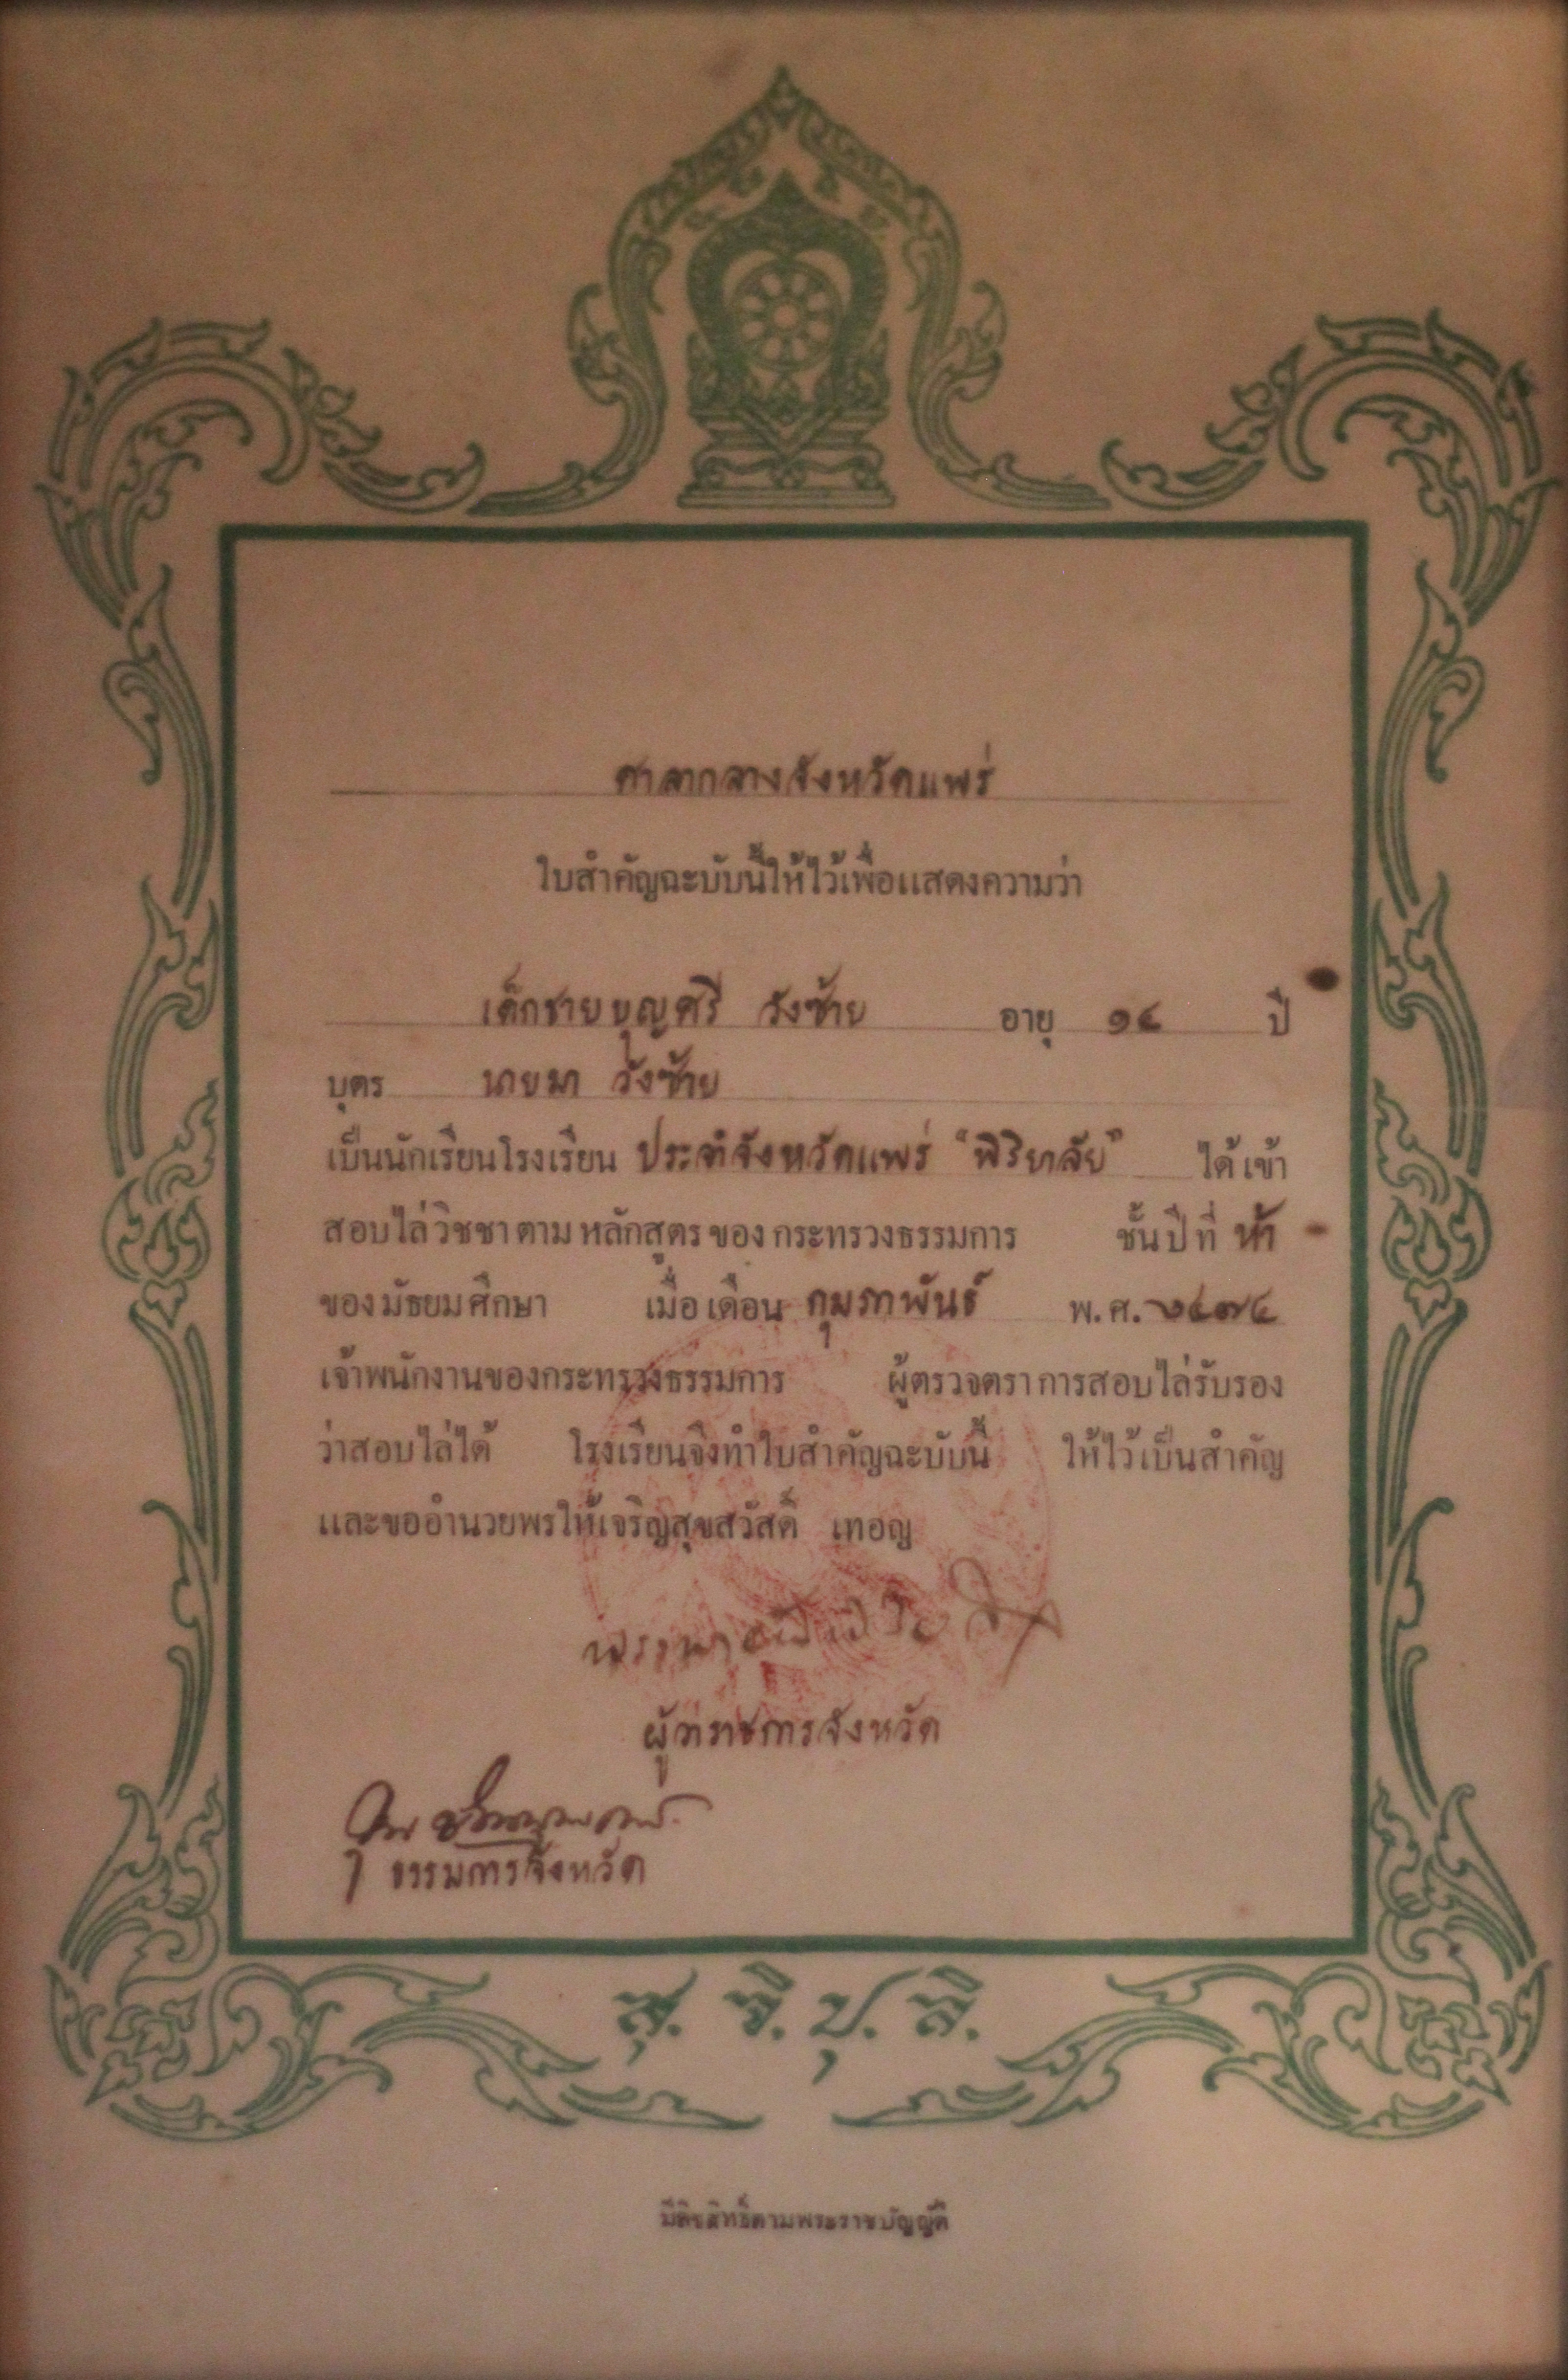 ศาลากลางจังหวัดแพร่
ใบสำคัญฉะบับนี้ให้ไว้เพื่อแสดงความว่า
เด็กชายบุญศรี วังซ้าย อายุ ๑๔ ปี
บุตร นายมา วังซ้าย
เป็นนักเรียนโรงเรียน ประจำจังหวัดแพร่ "พิริยาลัย" ได้เข้า
สอบไล่วิชชาตามหลักสูตรของกระทรวงธรรมการ ชั้นปีที่ ห้า
ของมัธยมศึกษา เมื่อเดือน กุมภาพันธ์ พ.ศ. ๒๔๗๔
เจ้าพนักงานของกระทรวงธรรมการ ผู้ตรวจตราการสอบไล่รับรอง
ว่าสอบไล่ได้ โรงเรียนจึงทำใบสำคัญฉะบับนี้ ให้ไว้เป็นสำคัญ
และขออำนวยพรให้เจริญสุขสวัสดิ์ เทอญ
ผู้ว่าราชการจังหวัด
ธรรมการจังหวัด
สุ. จิ. ปุ. ลิ.
มีลิขสิทธิ์ตามพระราชบัญญัติ